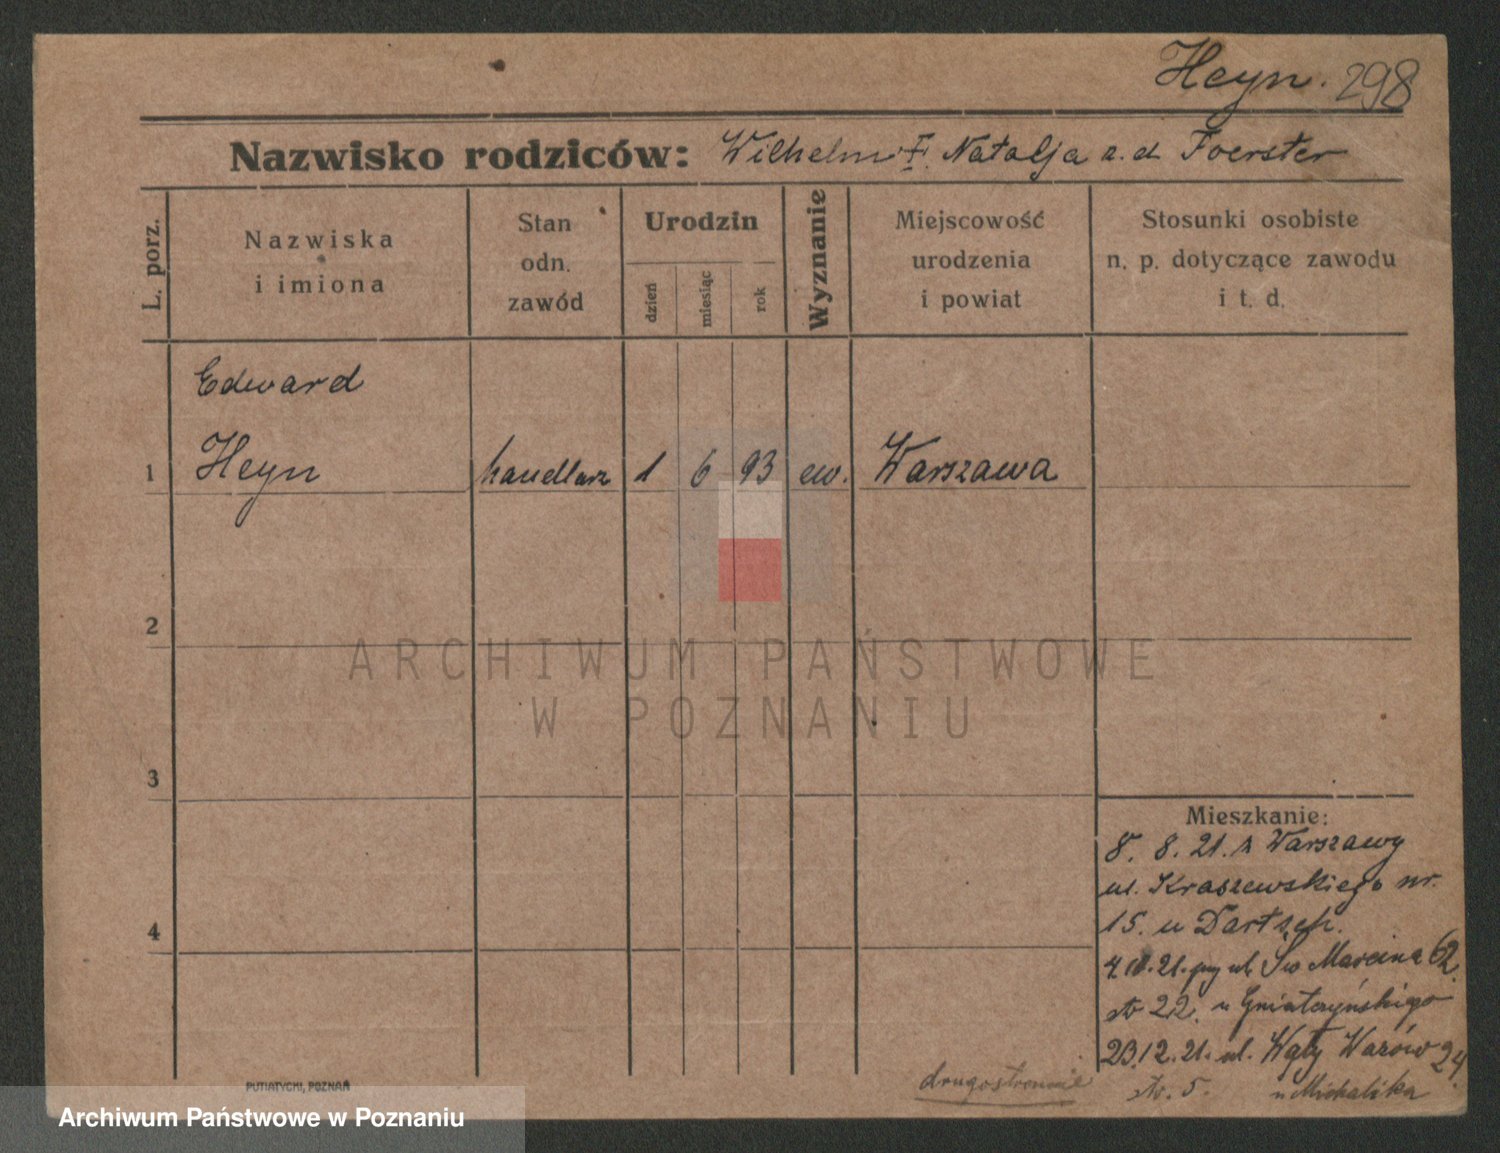 Heyn. 298
Nazwisko rodziców: Wilhelm Natalja Foerster
L. porz.
Nazwiska
i imiona
Stan
odn.
zawód
Urodzin
dzień
miesiąc
rok
Wyznanie
Miejscowość
urodzenia
i powiat
Stosunki osobiste
n. p. dotyczące zawodu
i t. d.
Edward
1 Heyn handlarz 1 6 93 ew. Warszawa
2
3
4
ARCHIWUM PAŃSTWOWE
W POZNANIU
Mieszkanie:
8. 8. 21. z Warszawy
ul. Kraszewskiego nr.
15. u Dartsch.
21. ul Św Marcina 62.
22. u Gniatczyńskiego
23.12.21. ul. Wały 24
5. u Michalika
drugostronnie
PUTIATYCKI, POZNAŃ
Archiwum Państwowe w Poznaniu